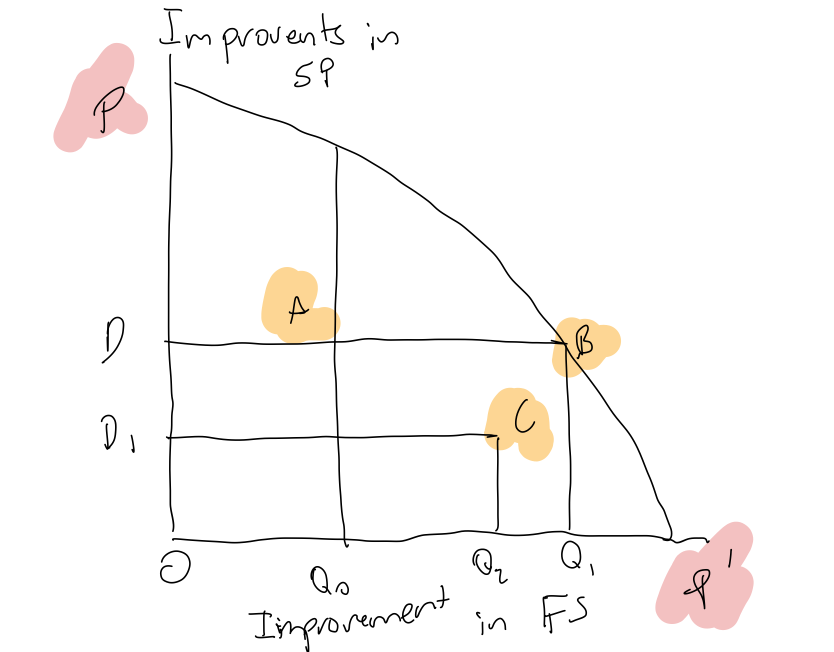 Improvents in
SP
P
A
D
B
C
D1
O
Q0
Q2
Q1
P'
Improvement in FS